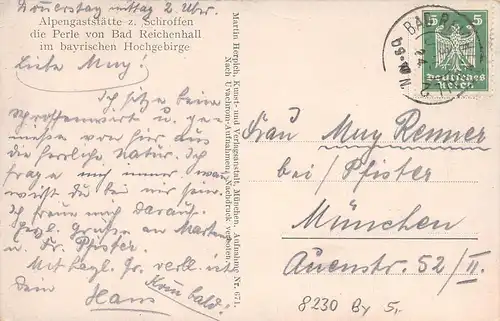 Donnerstag mittag 2 Uhr.
Alpengaststätte z. Schroffen
die Perle von Bad Reichenhall
im bayrischen Hochgebirge
Liebe Muy!
Ich sitze beim
Schroffenwirt u. ge-
nieße von hier aus
die herrliche Natur. Ich
frage mich immer, wann
wirst du bei mir sein.
Ich freue mich darauf.
Hrzl. Grüße an
u. Fr. Pfister.
Mit hrzl. Gr. verbl. ich
dein Hans
Komm bald!
Martin Herpich, Kunst- und Verlagsanstalt, München. Aufnahme Nr. 671.
Nach Uvachrom-Aufnahmen, Nachdruck verboten.
BAD REICH
5 5
Deutsches
Reich
Frau Muy Renner
bei/Pfister
München
Auenstr. 52/II.
8230 By 5,-